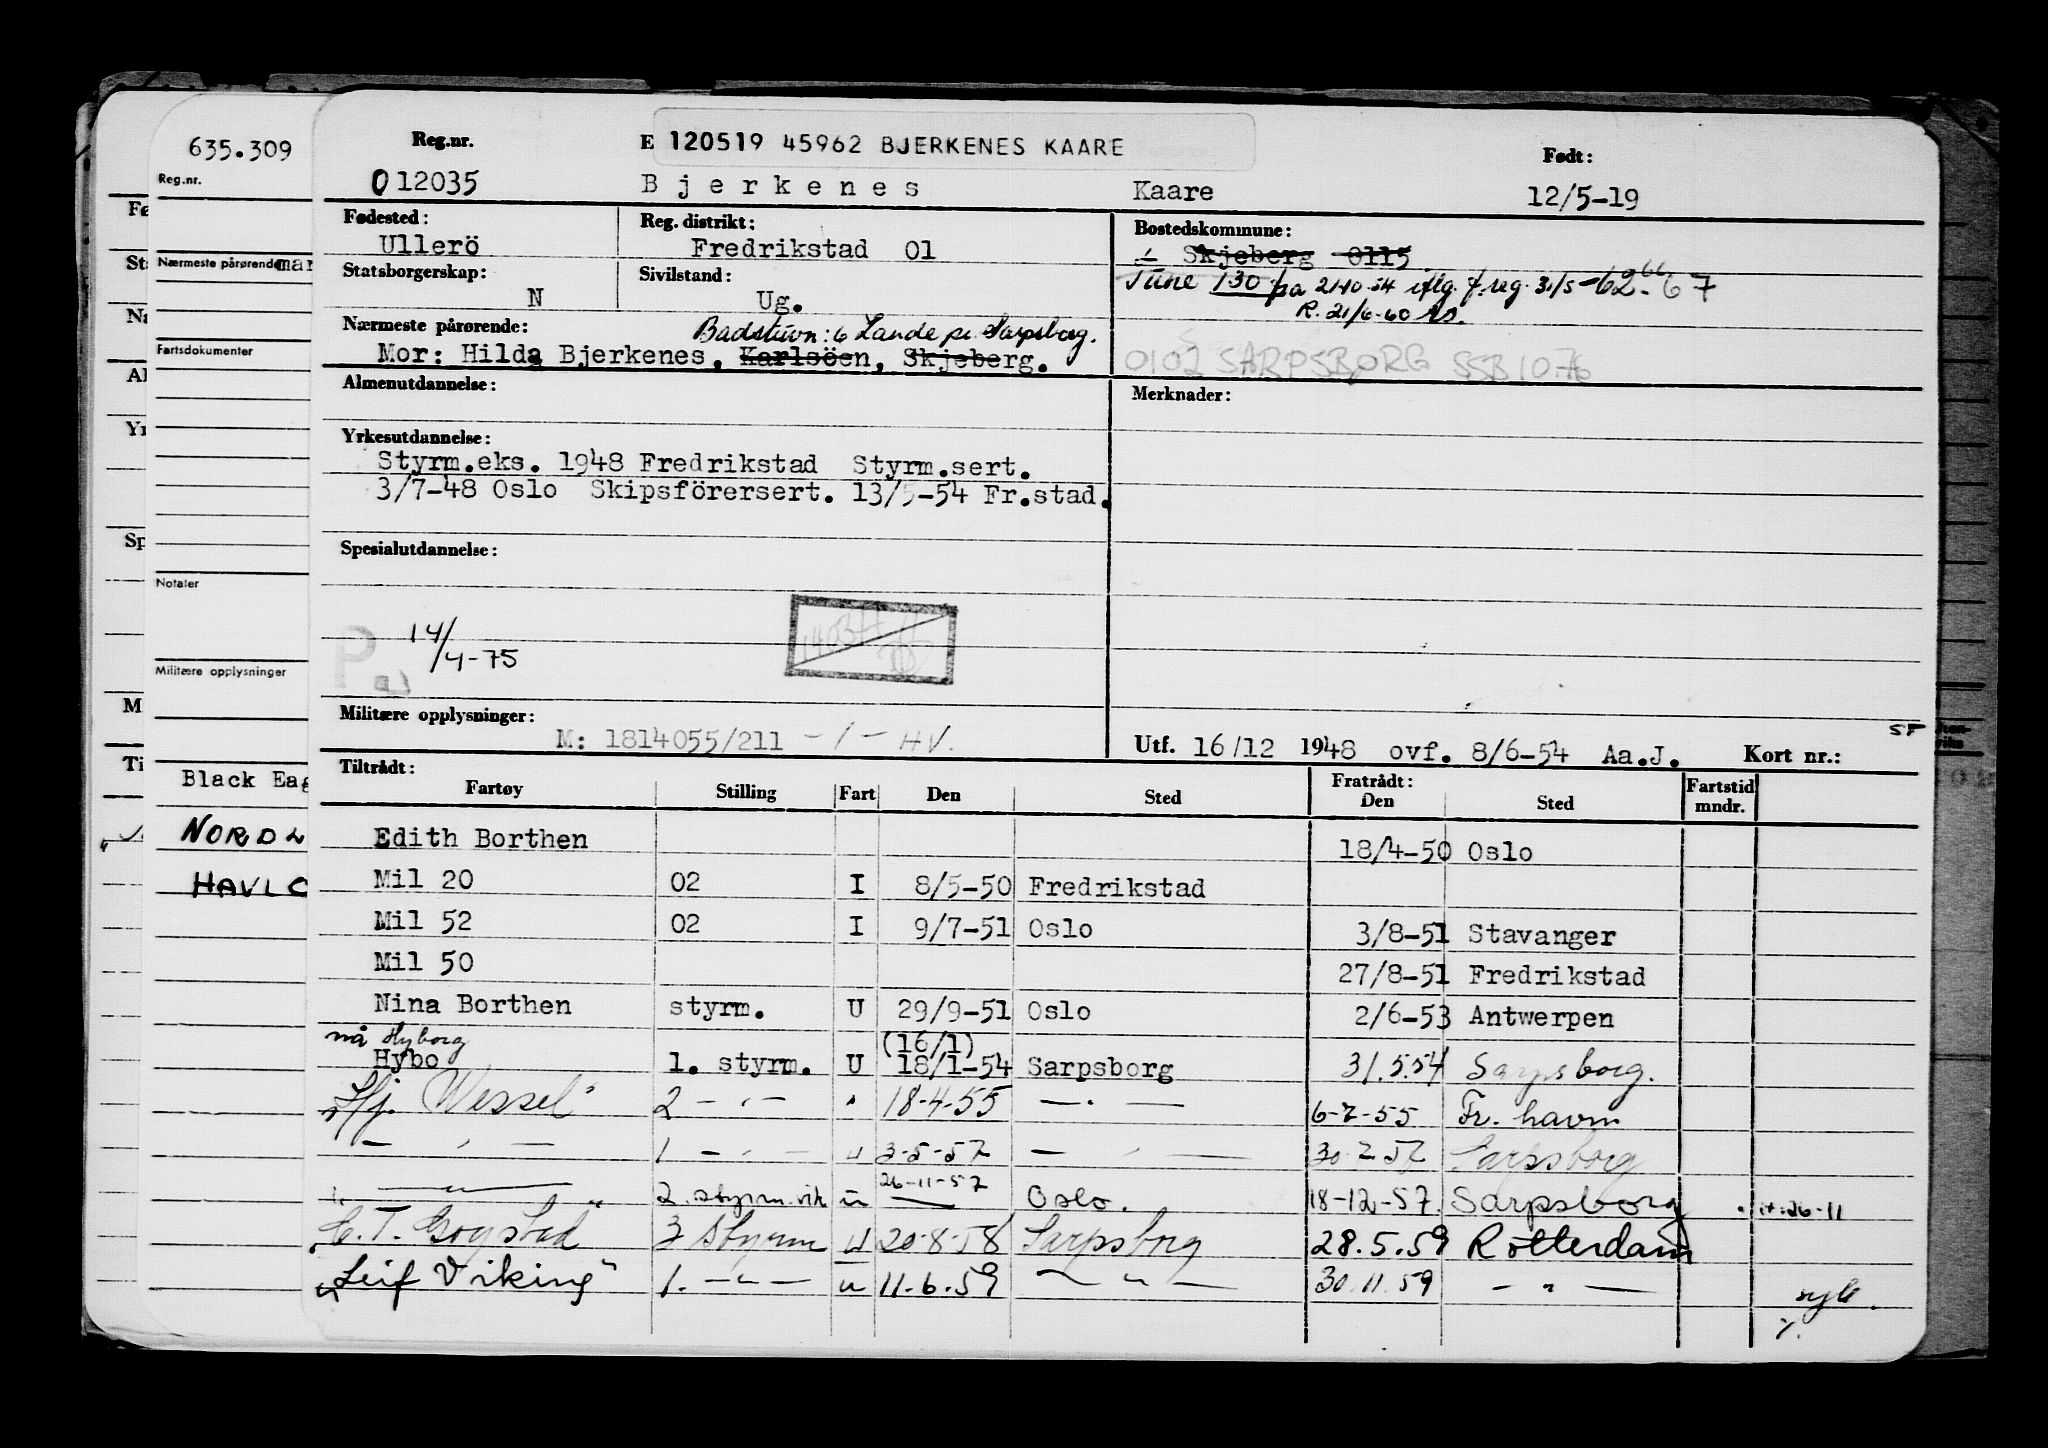 635.309
Reg.nr.
Nærmeste pårørende mar
Fartsdokumenter
Notater
Militære opplysninger
Black Eag
NORDL
HAVLO
Fø
Sta
Næ
Al
Yr
Sp
M
Ti
Reg.nr. E 120519 45962 BJERKENES KAARE Født:
012035 Bjerkenes Kaare 12/5-19
Fødested: Reg. distrikt: Bostedskommune:
Ullerö Fredrikstad 01 Skjeberg 0115
Statsborgerskap: Sivilstand: Tune 130 fra 21-10-54 iflg. f.reg. 31/5-62 66 67
N Ug. R. 21/6-60
Nærmeste pårørende: Badstuvn: 6 Lande pr. Sarpsborg.
Mor: Hilda Bjerkenes, Karlsöen, Skjeberg. 0102 SARPSBORG SSB 10.76
Almenutdannelse: Merknader:
Yrkesutdannelse:
Styrm.eks. 1948 Fredrikstad Styrm.sert.
3/7-48 Oslo Skipsförersert. 13/5-54 Fr.stad.
Spesialutdannelse:
14/4-75
Militære opplysninger: SF
M: 1814055/211 - / - HV. Utf. 16/12 1948 ovf. 8/6-54 Aa.J. Kort nr.:
Tiltrådt: Fratrådt: Fartstid
Fartøy Stilling Fart Den Sted Den Sted mndr.
Edith Borthen 18/4-50 Oslo
Mil 20 02 I 8/5-50 Fredrikstad
Mil 52 02 I 9/7-51 Oslo 3/8-51 Stavanger
Mil 50 27/8-51 Fredrikstad
Nina Borthen styrm. U 29/9-51 Oslo 2/6-53 Antwerpen
nå Hyborg (16/1)
Hybo 1. styrm. U 18/1-54 Sarpsborg 31.5.54 Sarpsborg.
Hj. Wessel" 2 - " - " 18-4-55 - " - 6-7-55 Fr. havn
- " - 1 - " - u 3-5-57 - " - 30 7 57 Sarpsborg
- " - 2. styrm. vik u 26-11-57 Oslo. 18-12-57. Sarpsborg it: 26-11
"C. T. Gogstad" 3 styrm U 20-8-58 Sarpsborg 28.5.59 Rotterdam
"Leif Viking" 1. - " - u 11-6-59 - " - 30.11.59 - " - syk.